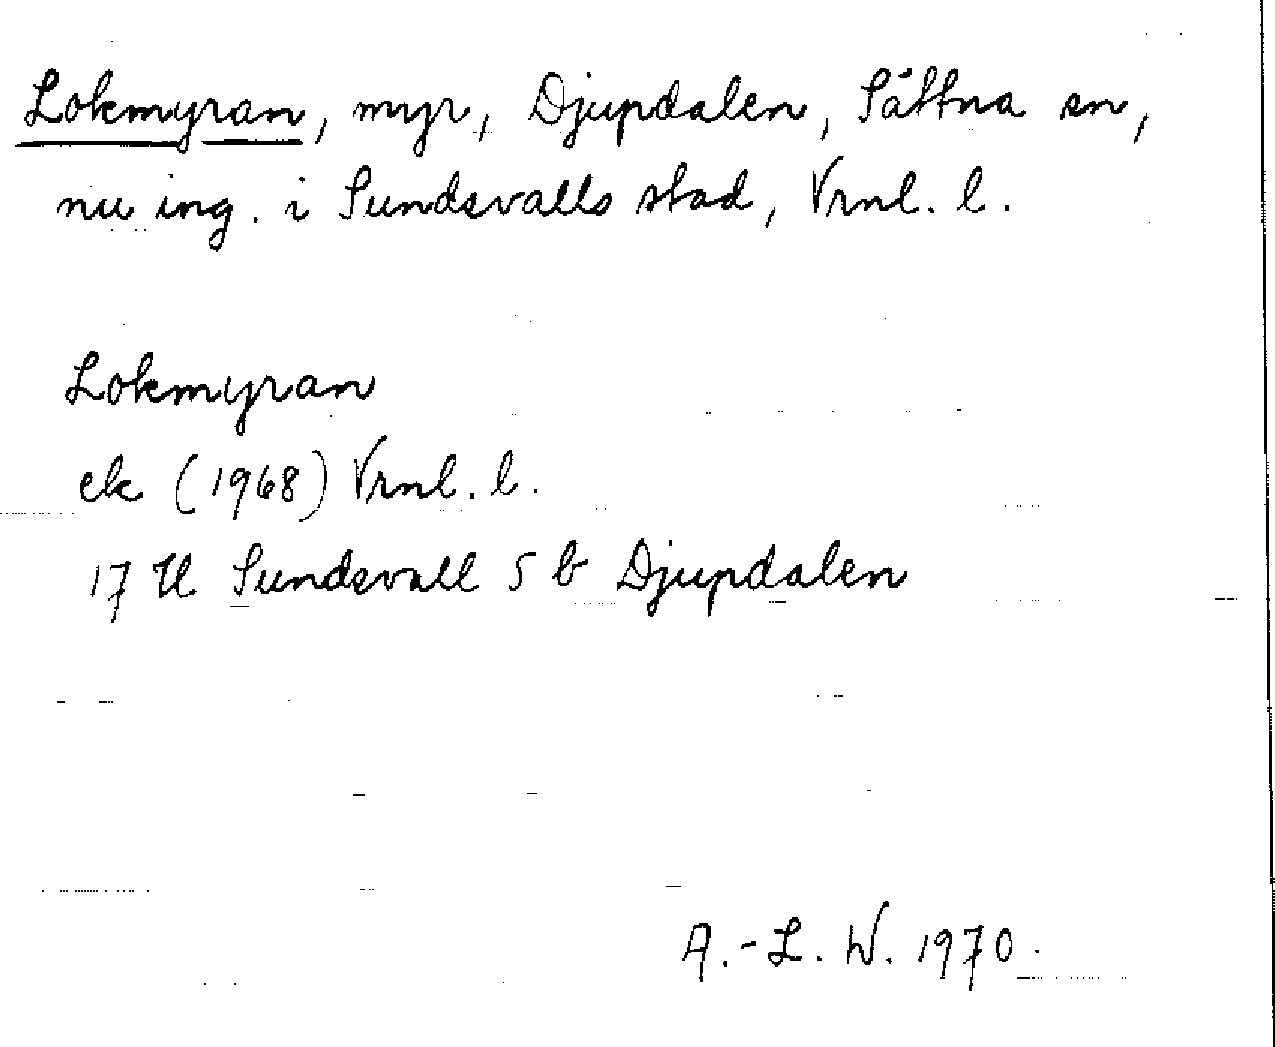 Lokmyran, myr, Djupdalen, Sättna sn,
nu ing. i Sundsvalls stad, Vrnl. l.
Lokmyran
ek (1968) Vrnl. l.
17 H Sundsvall 5 b Djupdalen
A.-L. W. 1970.